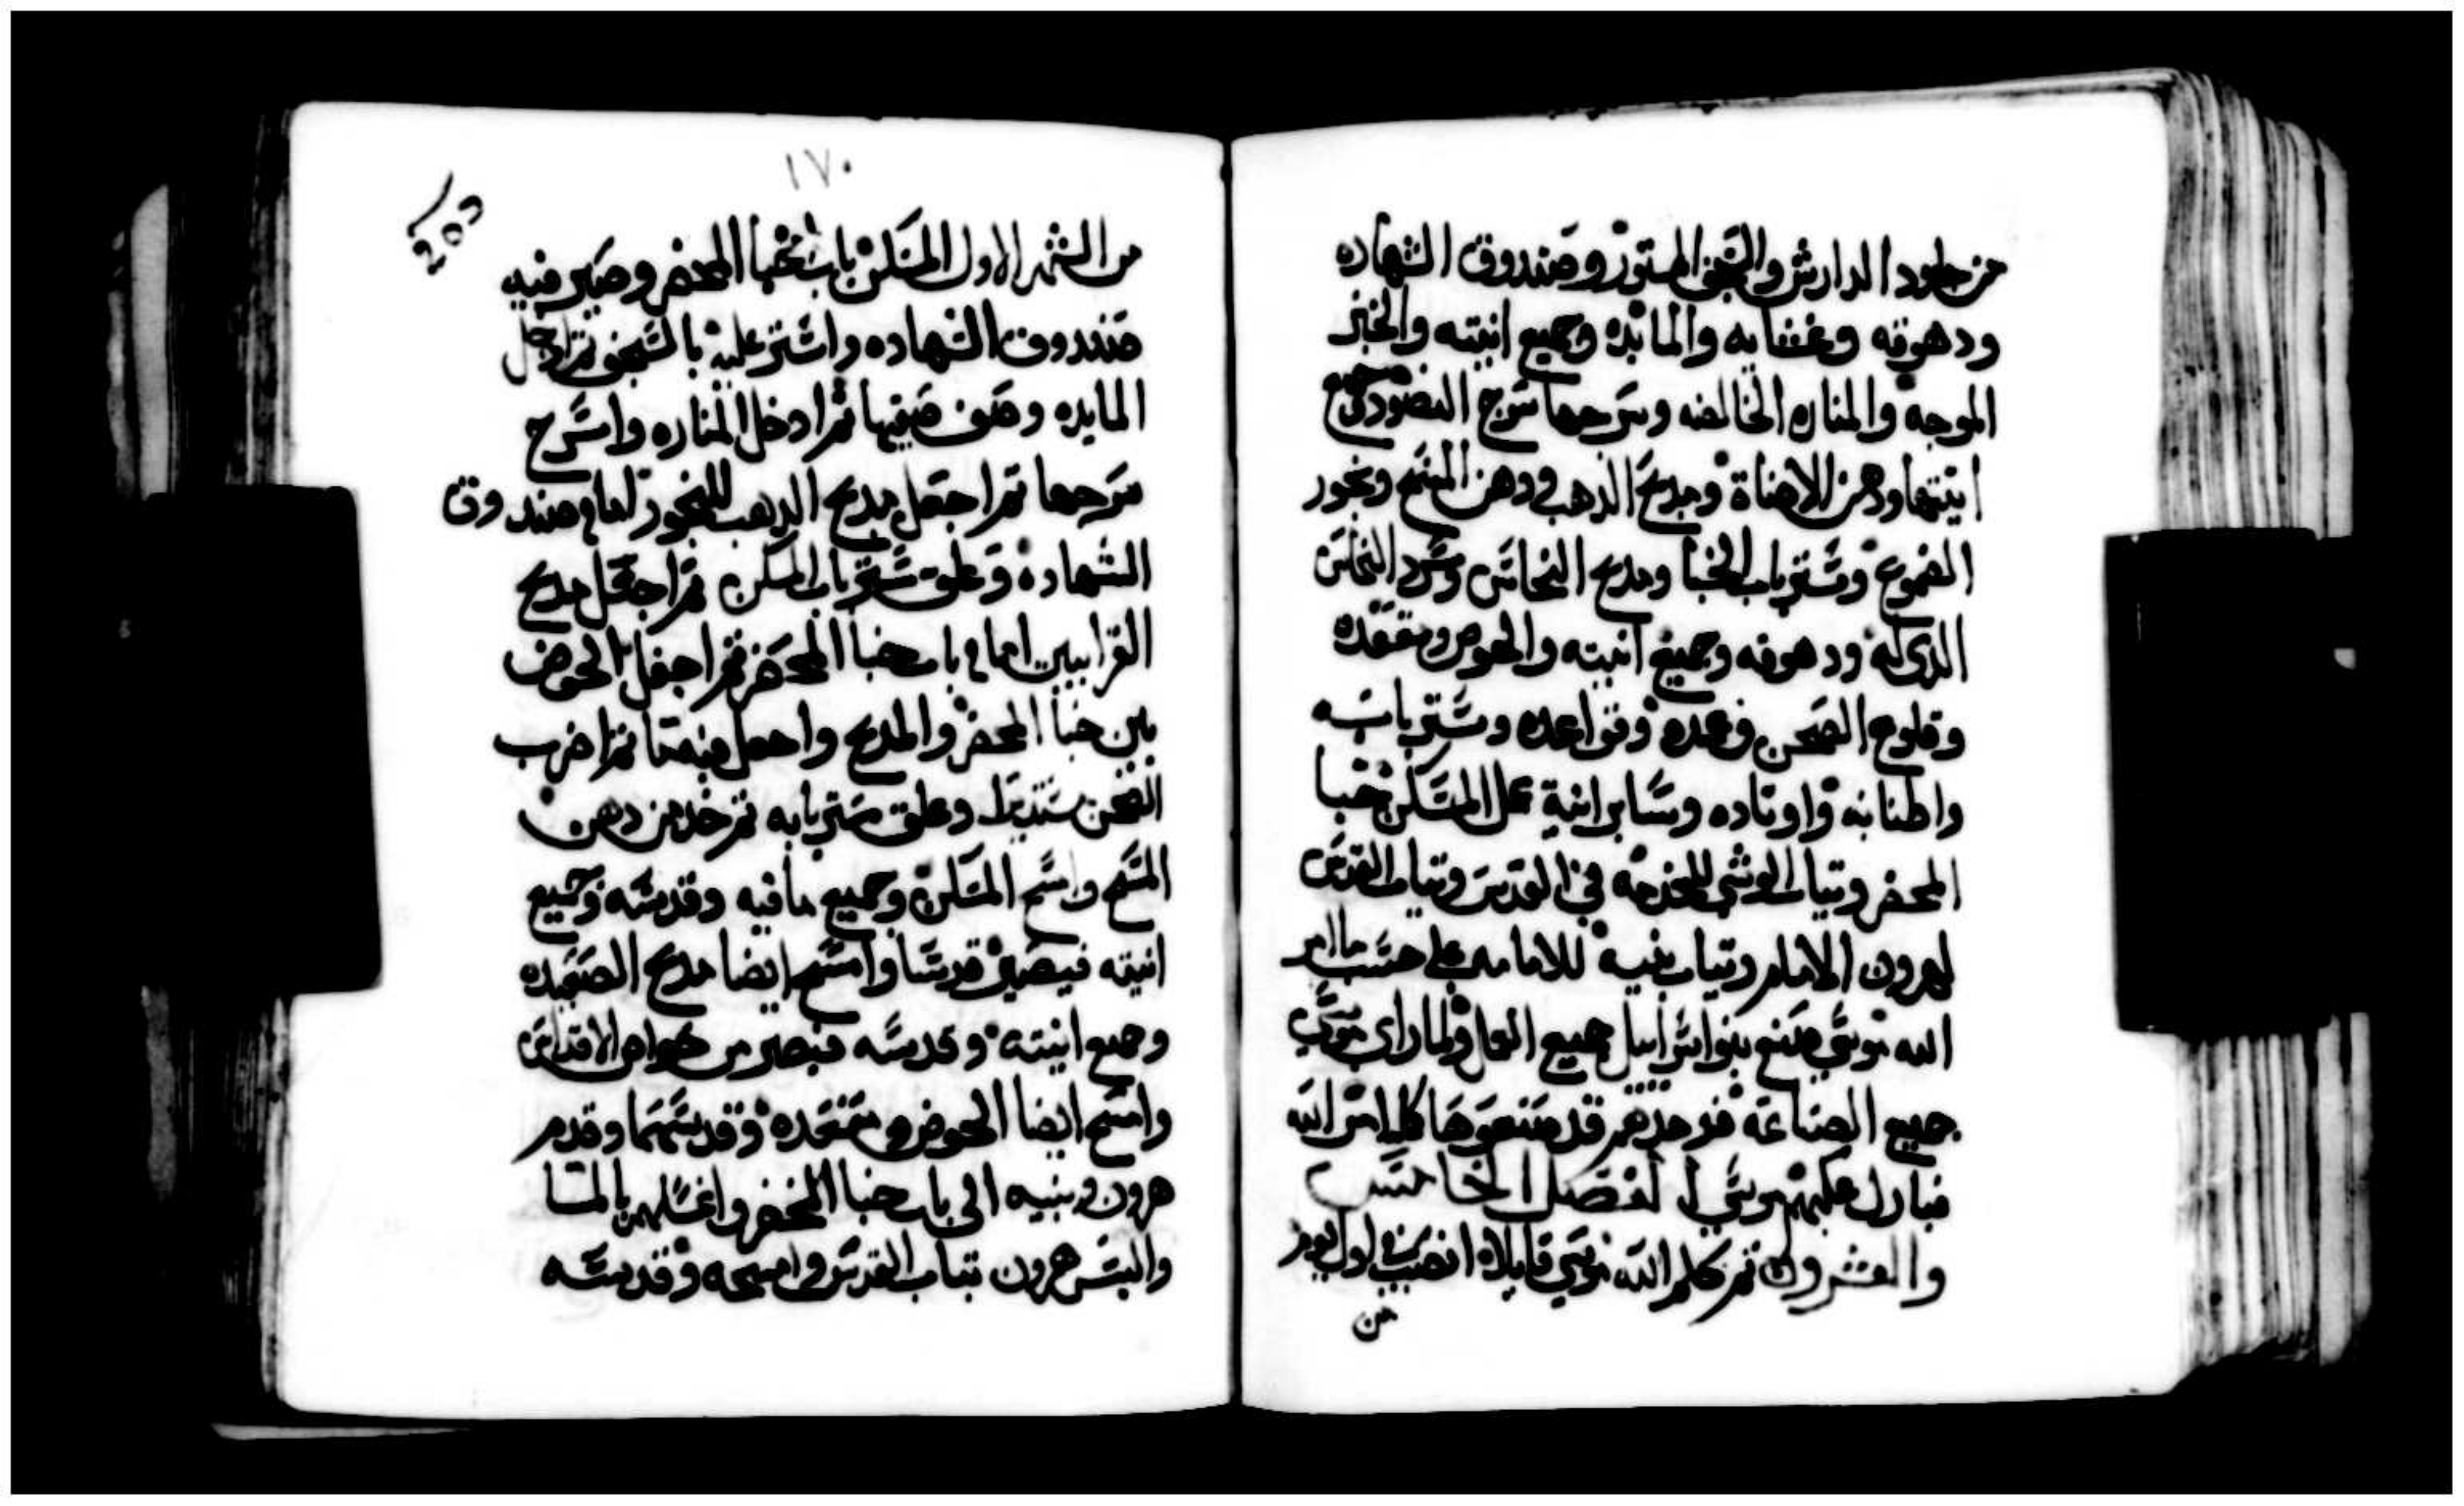 من جلود الدارش والسجف المستور وصندوق الشهاده
ودهوقه وغشايه والمائده وجميع انيته والخبز
الموجه والمناره الخالصه وسرجها سرج النضود وجميع
انيتها ودهن الاضاة ومدبح الدهب ودهن المسح وبخور
الصموغ وستر باب الخبا ومدبح النحاس وسرد النحاس
الذى له ودهوقه وجميع انيته والحوض ومقعده
وقلوع الصحن وعمده وقواعده وستر بابه
واطنابه واوتاده وساير انية عمل المسكن خبا
المحضر وتياب الوشي للخدمه في القدس وتياب القدس
لهرون الامام وتياب بنيه للامامه على حسب ما امر
الله موسي صنع بنوا اسراييل جميع العمل ولما راى موسي
جميع الصناعه فوجدهم قد صنعوها كما امر الله
فبارك عليهم موسي الفصل الخامس
والعشرون ثم كلم الله موسي قايلا انصب في اول يوم
من
١٧٠
من الشهر الاول المسكن باب خبا المحضر وصير فيه
صندوق الشهاده واستر عليه بالسجف ثم ادخل
المايده وصف صفيها ثم ادخل المناره واسرج
سرجها ثم اجعل مدبح الدهب للبخور امام صندوق
الشهاده وعلق ستر باب المسكن ثم اجعل مدبح
القرابين امام باب خبا المحضر ثم اجعل الحوض
بين خبا المحضر والمدبح واجعل فيه ما ثم اضرب
الصحن مستديرا وعلق ستر بابه ثم خد من دهن
المسح وامسح المسكن وجميع ما فيه وقدسه وجميع
انيته فيصير قدسا وامسح ايضا مدبح الصعيده
وجميع انيته وقدسه فيصير من خواص الاقداس
وامسح ايضا الحوض ومقعده وقدسهما وقدم
هرون وبنيه الى باب خبا المحضر واغسلهم بالما
والبس هرون تياب القدس وامسحه وقدسه